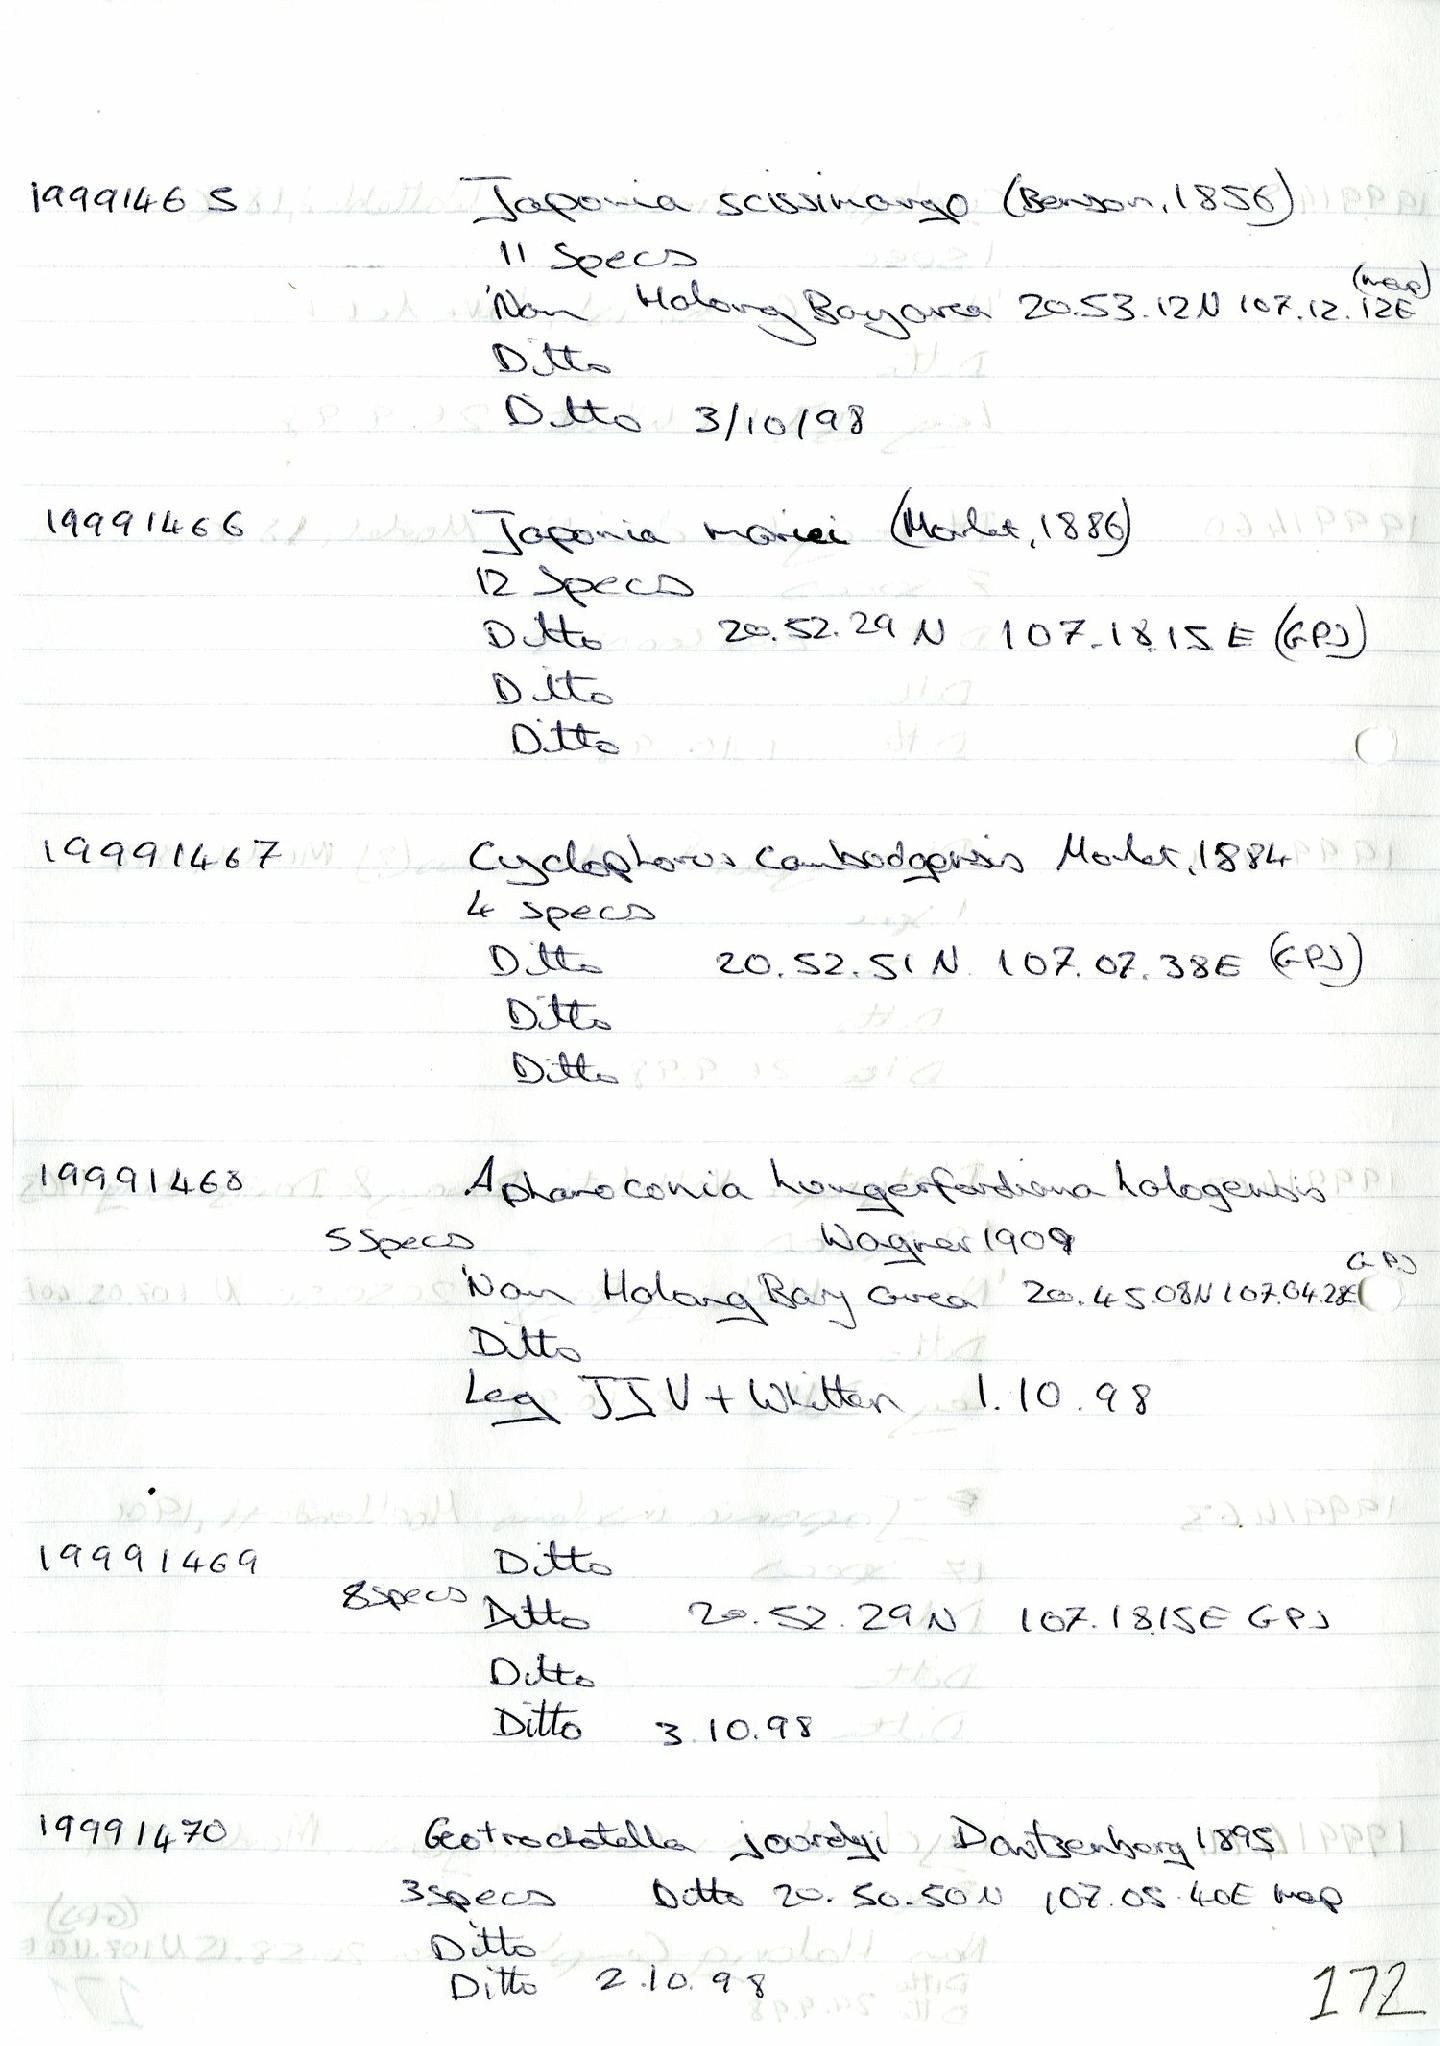 19991465 Japonia scissimargo (Benson, 1856)
11 Specs
(map)
'Nam Halong Bay area 20.53.12N 107.12.12E
Ditto
Ditto 3/10/98
19991466 Japonia mariei (Morlet, 1886)
12 Specs
Ditto 20.52.29N 107.18.15E (GPS)
Ditto
Ditto
19991467 Cyclophorus cambodgensis Morlet, 1884
4 specs
Ditto 20.52.51N 107.07.38E (GPS)
Ditto
Ditto
19991468 Aphanoconia hungerfordiana halogensis
5 Specs Wagner 1909
GPS
'Nam Halong Bay area 20.45.08N 107.04.28E
Ditto
Leg JJV + Whitten 1.10.98
19991469 Ditto
8 specs Ditto 20.52.29N 107.18.15E GPS
Ditto
Ditto 3.10.98
19991470 Geotrochatella jourdyi Dautzenberg 1895
3 specs Ditto 20.50.50N 107.05.40E map
Ditto
Ditto 2.10.98
172